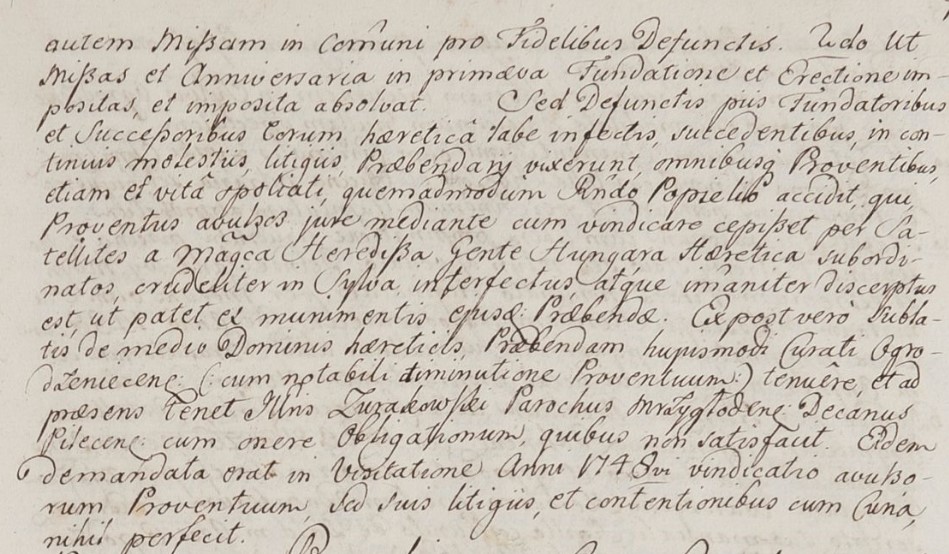 autem Mißam in Com̃uni pro Fidelibus Defunctis. 2do Ut
Mißas et Anniversaria in primæva Fundatione et Erectione im-
positas, et imposita absolvat. Sed Defunctis piis Fundatoribus
et Succeßoribus Eorum, hæreticâ labe infectis, succedentibus, in con-
tinuis molestiis, litigiis, Præbendarij vixerunt, omnibusq; Proventibus,
etiam et vitâ spoliati, quemadmodum Rndo Popielio accidit, qui
Proventus avulsos jure mediante cum vindicare cepißet per Sa-
tellites a Mag̃ca Heredißa Gente Hungara Hæretica subordi-
natos, crudeliter in Sylva interfectus, atque im̃aniter discerptus
est, ut patet ex munimentis ejusd: Præbendæ. Ex post verò subla-
tis de medio Dominis hæreticis, Præbendam hujusmodi Curati Ogro-
dzeniecen: (: cum notabili diminutione Proventuum:) tenuêre, et ad
præsens tenet Illris Zurakowski Parochus Mrzyglodien: Decanus
Pilecen: cum onere Obligationum, quibus non satisfacit. Eidem
demandata erat in Visitatione Anni 1748vi vindicatio avulso-
rum Proventuum, sed suis litigiis, et contentionibus cum Curia,
nihil perfecit.